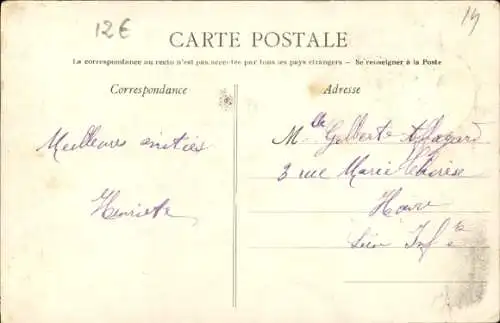 12€
14
CARTE POSTALE
La correspondance au recto n'est pas acceptée par tous les pays étrangers — Se renseigner à la Poste
Correspondance
Adresse
Meilleures amitiés
Henriette
Mlle Gilberte
3 rue Marie Thérèse
Havre
Seine Infre